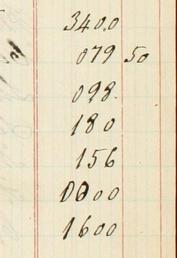 3400
079 50
098
180
156
0000
1600